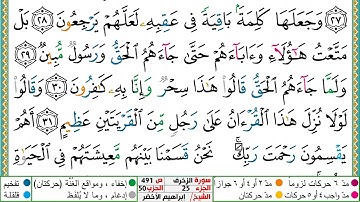 ٢٧ وَجَعَلَهَا كَلِمَةَۢ بَاقِيَةٗ فِي عَقِبِهِۦ لَعَلَّهُمۡ يَرۡجِعُونَ ٢٨ بَلۡ
مَتَّعۡتُ هَٰٓؤُلَآءِ وَءَابَآءَهُمۡ حَتَّىٰ جَآءَهُمُ ٱلۡحَقُّ وَرَسُولٞ مُّبِينٞ ٢٩
وَلَمَّا جَآءَهُمُ ٱلۡحَقُّ قَالُواْ هَٰذَا سِحۡرٞ وَإِنَّا بِهِۦ كَٰفِرُونَ ٣٠ وَقَالُواْ
لَوۡلَا نُزِّلَ هَٰذَا ٱلۡقُرۡءَانُ عَلَىٰ رَجُلٖ مِّنَ ٱلۡقَرۡيَتَيۡنِ عَظِيمٍ ٣١ أَهُمۡ
يَقۡسِمُونَ رَحۡمَتَ رَبِّكَۚ نَحۡنُ قَسَمۡنَا بَيۡنَهُم مَّعِيشَتَهُمۡ فِي ٱلۡحَيَوٰةِ
سورة الزخرف ص 491
الجزء 25 الحزب 50
الشيخ/ ابراهيم الأخضر
مدّ ٦ حركات لزوما مدّ ٢ أو ٤ أو ٦ جوازا
مدّ واجب ٤ أو ٥ حركات مدّ حركتان
إخفاء، ومواقع الغنّة (حركتان)
إدغام، وما لا يُلفَظ
تفخيم
قلقلة